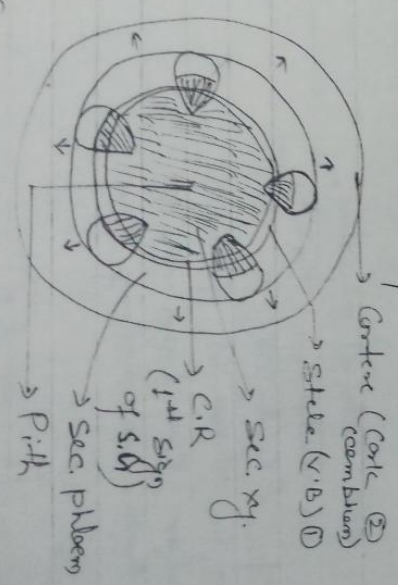 Cortex (Cork ②
cambium)
Stele (V.B) ①
Sec. xy.
C.R
(1st sign
of S.G)
Sec. phloem
Pith